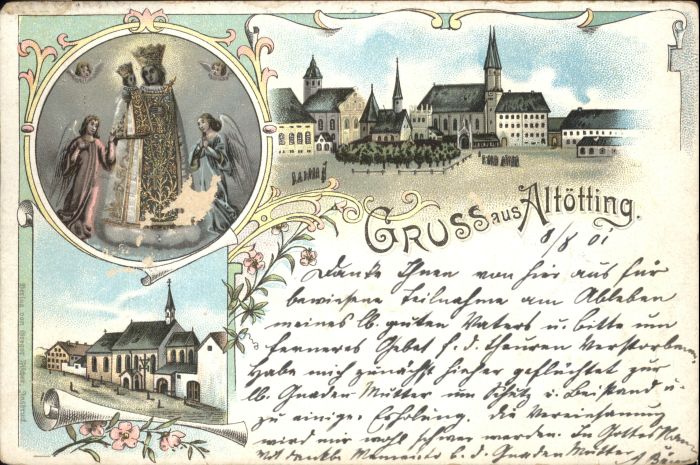 GRUSS aus Altötting.
8/8 01
Danke Ihnen von hier aus für
bewiesene Teilnahme am Ableben
meines lb. guten Vaters u. bitte um
ferneres Gebet f. d. theuren Verstorbenen
Habe mich zunächst hieher geflüchtet zur
lb. Gnaden Mutter um Schutz u. Beistand u.
zu einiger Erholung. Die Vereinsamung
wird mir wohl schwer werden. In Gottes
Mit dankb. Memento b. d. Gnaden Mutter
Verlag von